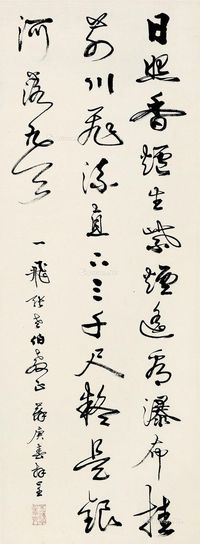 日照香爐生紫煙遙看瀑布挂
前川飛流直下三千尺疑是銀
河落九天
一飛 老伯教正 薛庚